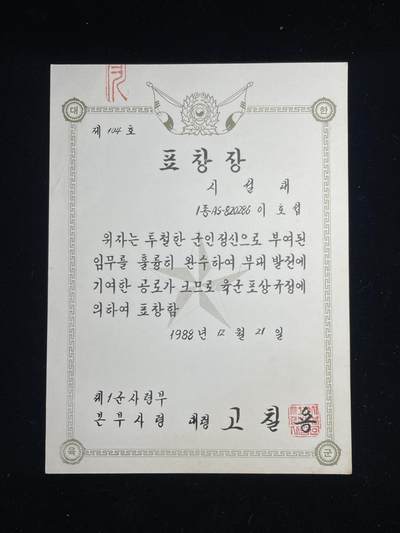 대 한
제 104 호
표 창 장
시 설 대
1종 AS-820286 이 호 섭
위자는 투철한 군인정신으로 부여된
임무를 훌륭히 완수하여 부대 발전에
기여한 공로가 크므로 육군 포상 규정에
의하여 표창함
1988 년 12 월 21 일
제1군사령부
본 부 사 령 대령 고 칠 용
육 군